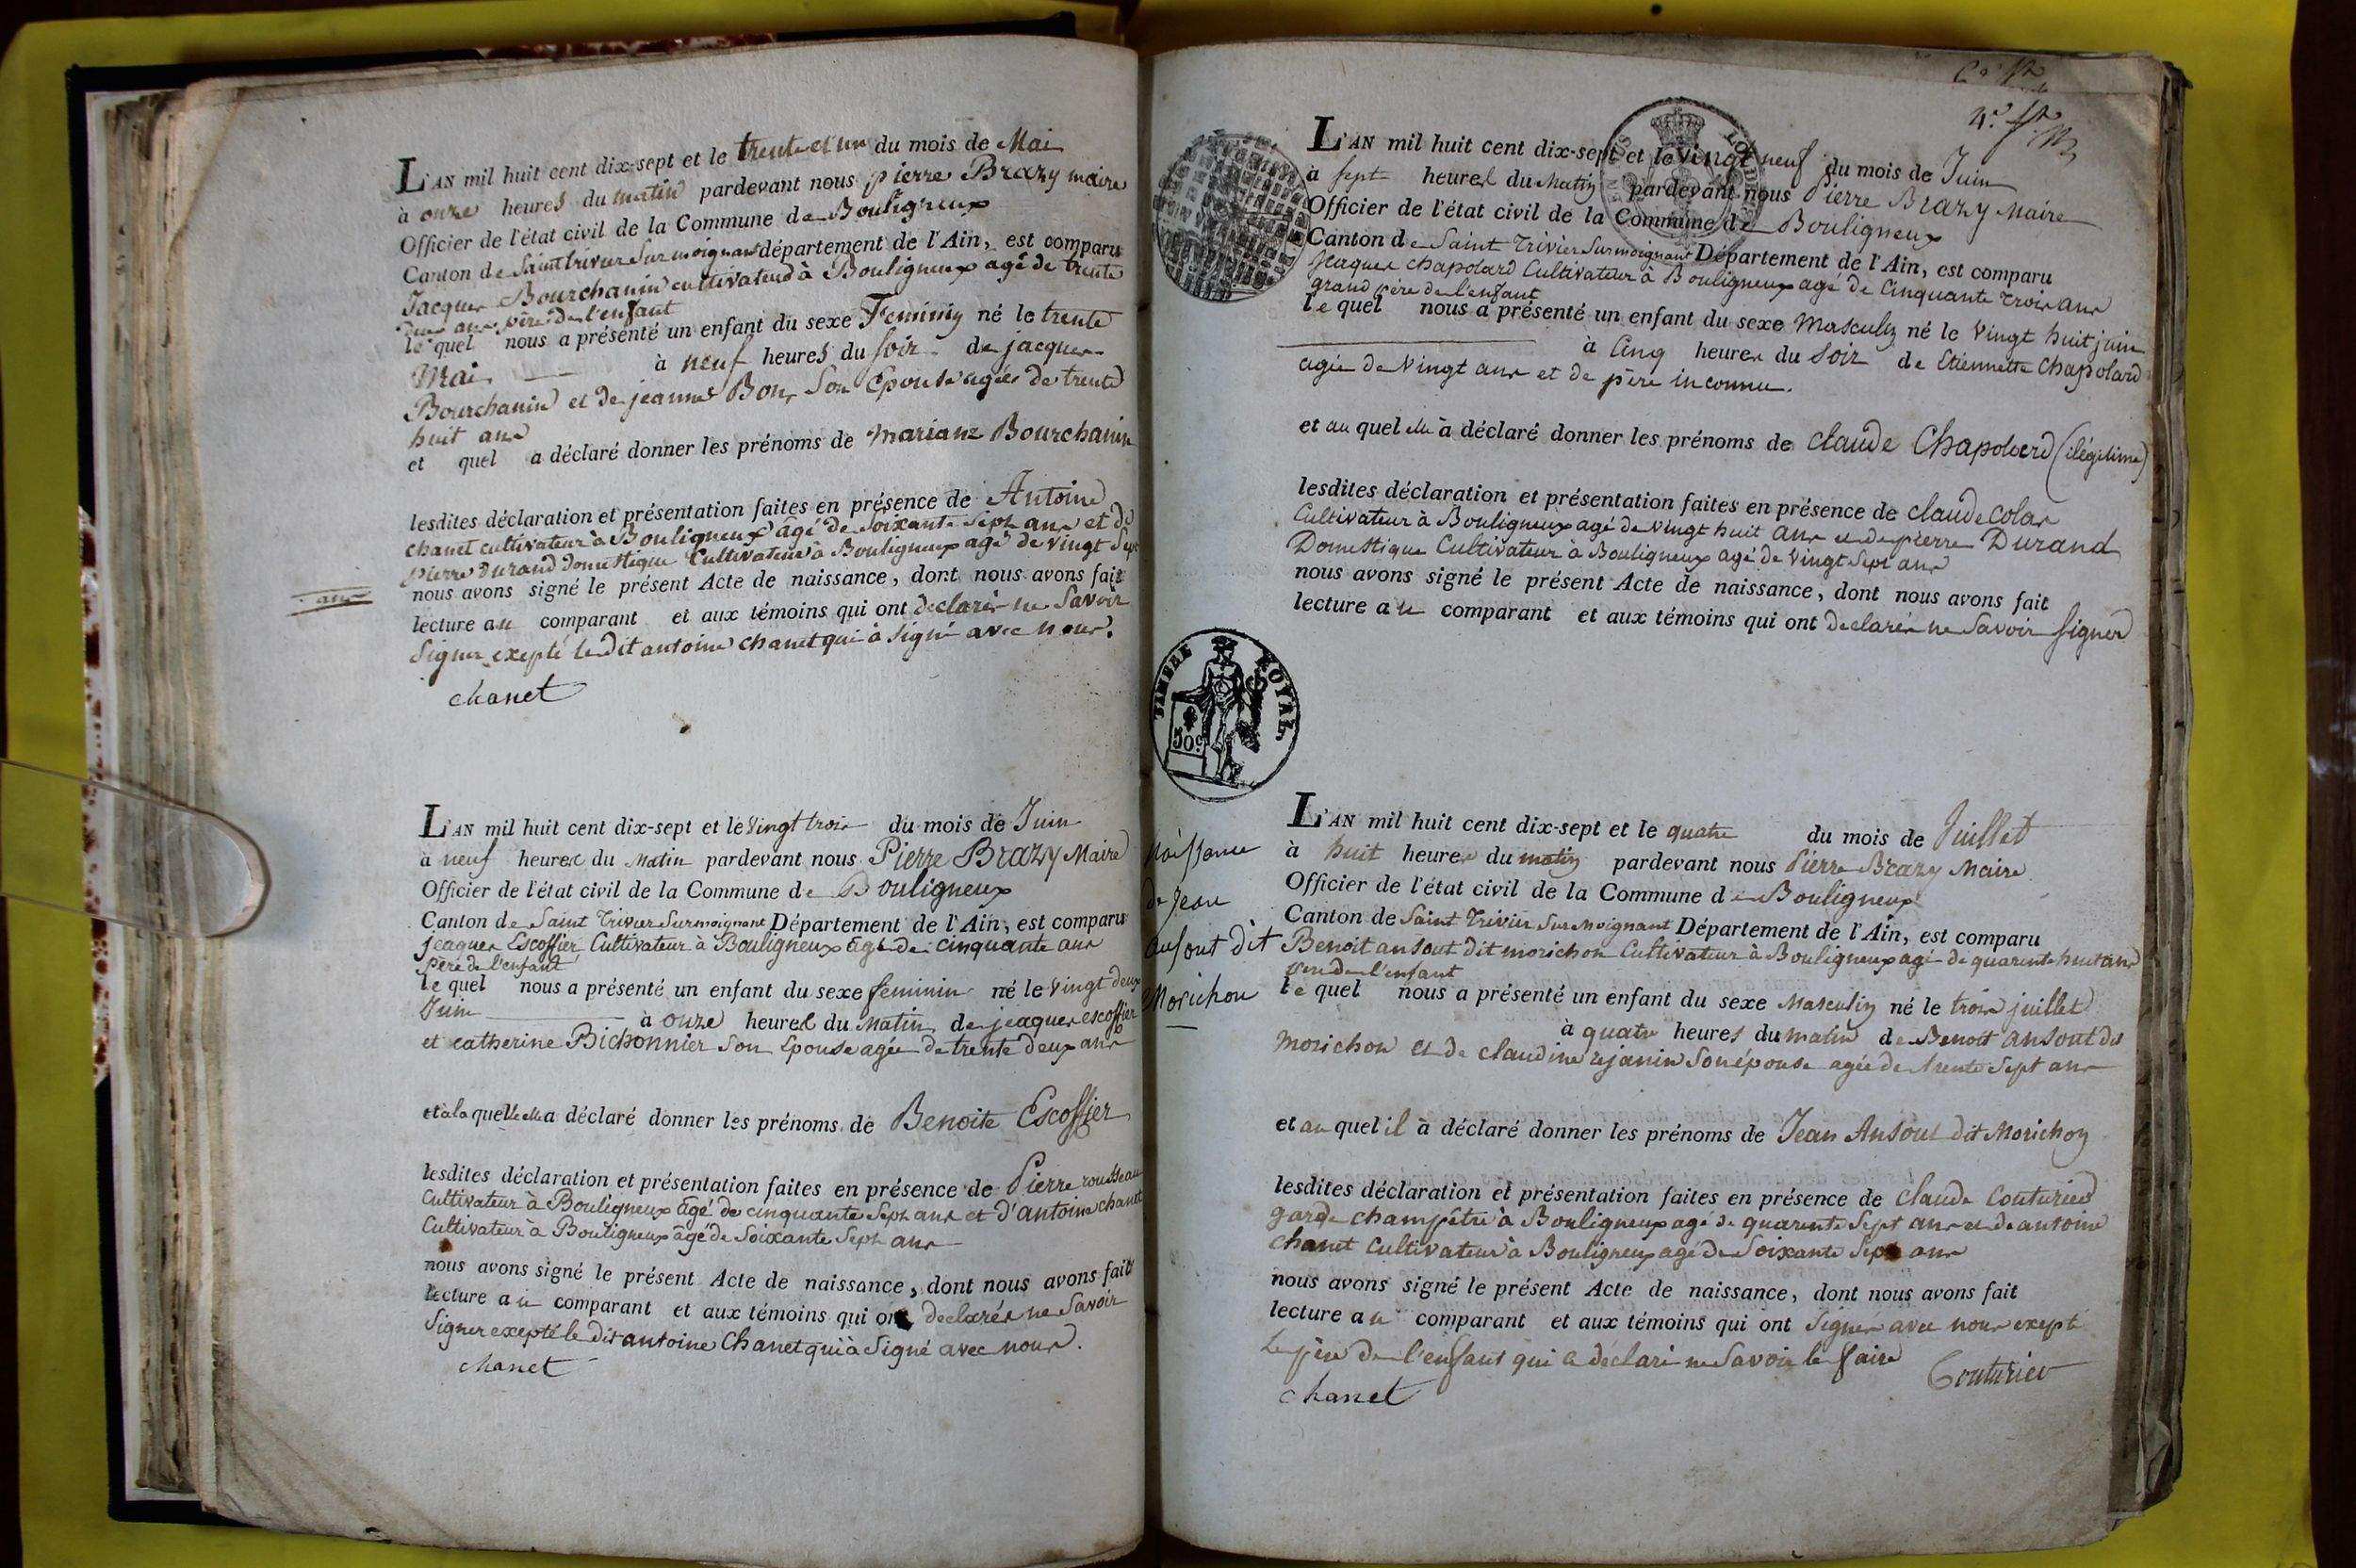 L'AN mil huit cent dix-sept et le trente et un du mois de Mai
à onze heures du matin pardevant nous pierre Brazy maire
Officier de l'état civil de la Commune de Bouligneux
Canton de Saint trivier Sur moignans département de l'Ain, est comparu
Jacques Bourchanin cultivateur à Bouligneux agé de trente
deux ans père de l'enfant
le quel nous a présenté un enfant du sexe Feminin né le trente
Mai à neuf heures du soir de jacques
Bourchanin et de jeanne Bon, son Epouse agée de trente
huit ans
et quel a déclaré donner les prénoms de Mariane Bourchanin
lesdites déclaration et présentation faites en présence de Antoine
chanet cultivateur à Bouligneux âgé de soixante sept ans et de
pierre Durand Domestique Cultivateur à Bouligneux agé de vingt Sept
ans
nous avons signé le présent Acte de naissance, dont nous avons fait
lecture au comparant et aux témoins qui ont declarés ne Savoir
Signer exepté le dit antoine chanet qui à signé avec nous.
chanet
L'AN mil huit cent dix-sept et le Vingt trois du mois de Juin
à neuf heures du Matin pardevant nous Pierre Brazy Maire
Officier de l'état civil de la Commune de Bouligneux
Canton de Saint Trivier Surmoignant Département de l'Ain, est comparu
jeaques Escoffier, Cultivateur à Bouligneux agé de cinquante ans
père de l'enfant
le quel nous a présenté un enfant du sexe feminin né le vingt deux
Juin à onze heures du Matin de jeaques escoffier
et catherine Bichonnier son Epouse agée de trente deux ans
et à la quelle a déclaré donner les prénoms de Benoite Escoffier
lesdites déclaration et présentation faites en présence de Pierre rousseau
Cultivateur à Bouligneux âgé de cinquante Sept ans et d'antoine chanet
Cultivateur à Bouligneux âgé de Soixante Sept ans
nous avons signé le présent Acte de naissance, dont nous avons fait
lecture au comparant et aux témoins qui ont declarés ne Savoir
Signer exepté le dit antoine Chanet qui à Signé avec nous.
chanet
L'AN mil huit cent dix-sept et le vingt neuf du mois de Juin
à sept heures du Matin pardevant nous Pierre Brazy Maire
Officier de l'état civil de la Commune de Bouligneux
Canton de Saint Trivier Surmoignant Département de l'Ain, est comparu
jeaques chapolard Cultivateur à Bouligneux agé de Cinquante trois ans
grand père de l'enfant
le quel nous a présenté un enfant du sexe Masculin né le Vingt huit juin
à Cinq heures du Soir de Etiennette Chapolard
agée de Vingt ans et de père inconnu.
et au quel à déclaré donner les prénoms de claude Chapolard (ilégitime)
lesdites déclaration et présentation faites en présence de claude Colas
Cultivateur à Bouligneux agé de vingt huit ans et de pierre Durand
Domestique Cultivateur à Bouligneux agé de Vingt Sept ans
nous avons signé le présent Acte de naissance, dont nous avons fait
lecture au comparant et aux témoins qui ont declarés ne Savoir signer
TIMBRE ROYAL
50c
Naissance
de Jean
ansout dit
Morichon
L'AN mil huit cent dix-sept et le quatre du mois de Juillet
à huit heures du matin pardevant nous Pierre Brazy Maire
Officier de l'état civil de la Commune de Bouligneux
Canton de Saint Trivier Sur Moignant Département de l'Ain, est comparu
Benoit ansout dit morichon Cultivateur à Bouligneux agé de quarente huit ans
père de l'enfant
le quel nous a présenté un enfant du sexe Masculin né le trois juillet
à quatre heures du matin de Benoit ansout dit
Morichon et de claudine rejanin son épouse agée de trente Sept ans
et au quel il à déclaré donner les prénoms de Jean Ansout dit Morichon
lesdites déclaration et présentation faites en présence de Claude Couturier
garde champêtre à Bouligneux agé de quarente Sept ans et de antoine
chanet Cultivateur à Bouligneux agé de Soixante Sept ans
nous avons signé le présent Acte de naissance, dont nous avons fait
lecture au comparant et aux témoins qui ont Signés avec nous exepté
le père de l'enfant qui a déclaré ne Savoir le faire
Couturier
chanet